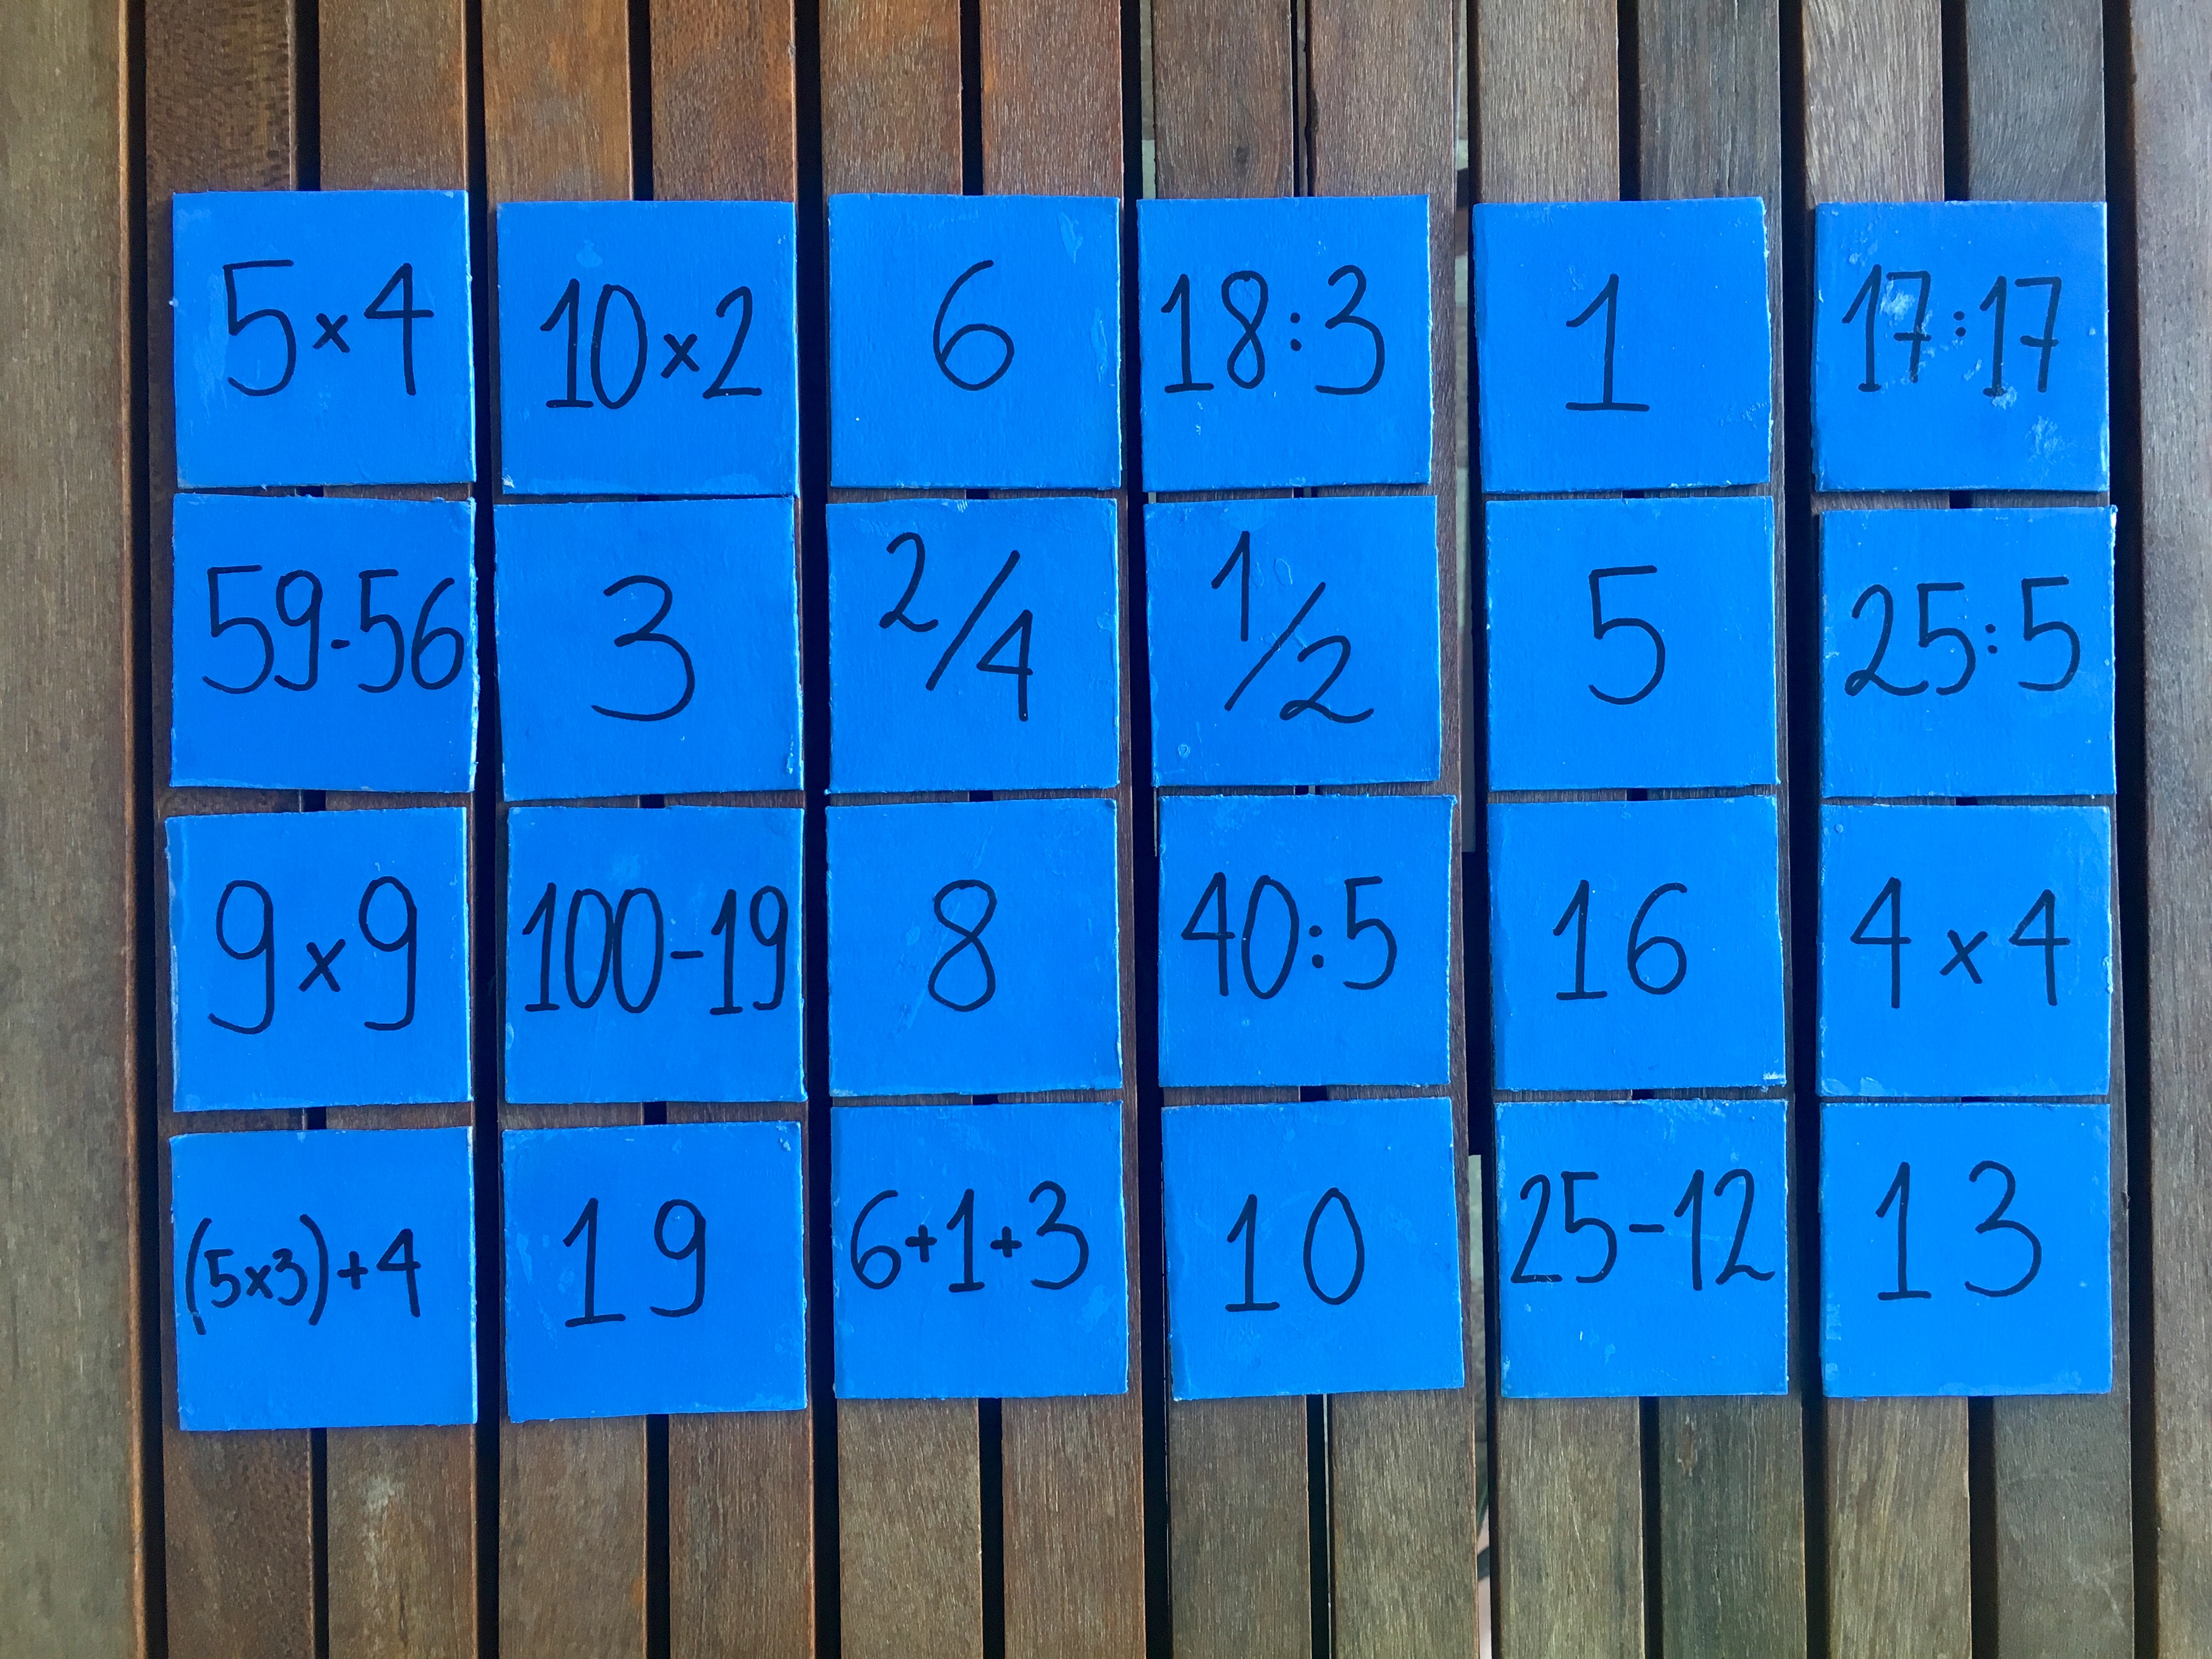 5×4 10×2 6 18:3 1 17:17
59-56 3 2/4 1/2 5 25:5
9×9 100-19 8 40:5 16 4×4
(5×3)+4 19 6+1+3 10 25-12 13